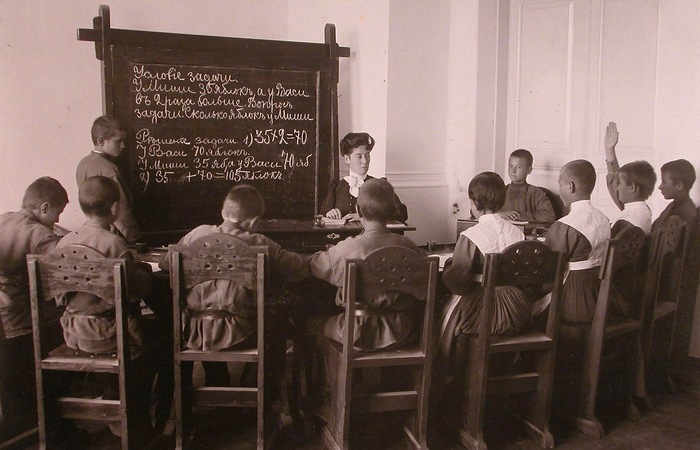 Условiе задачи.
У Миши 35 яблокъ, а у Васи
въ 2 раза больше. Вопросъ
задачи: Сколько яблокъ у Миши
Рѣшенiе задачи 1) 35×2=70
У Васи 70 яблокъ.
У Миши 35 ябл. у Васи 70 яб
2) 35 +70=105 яблокъ.